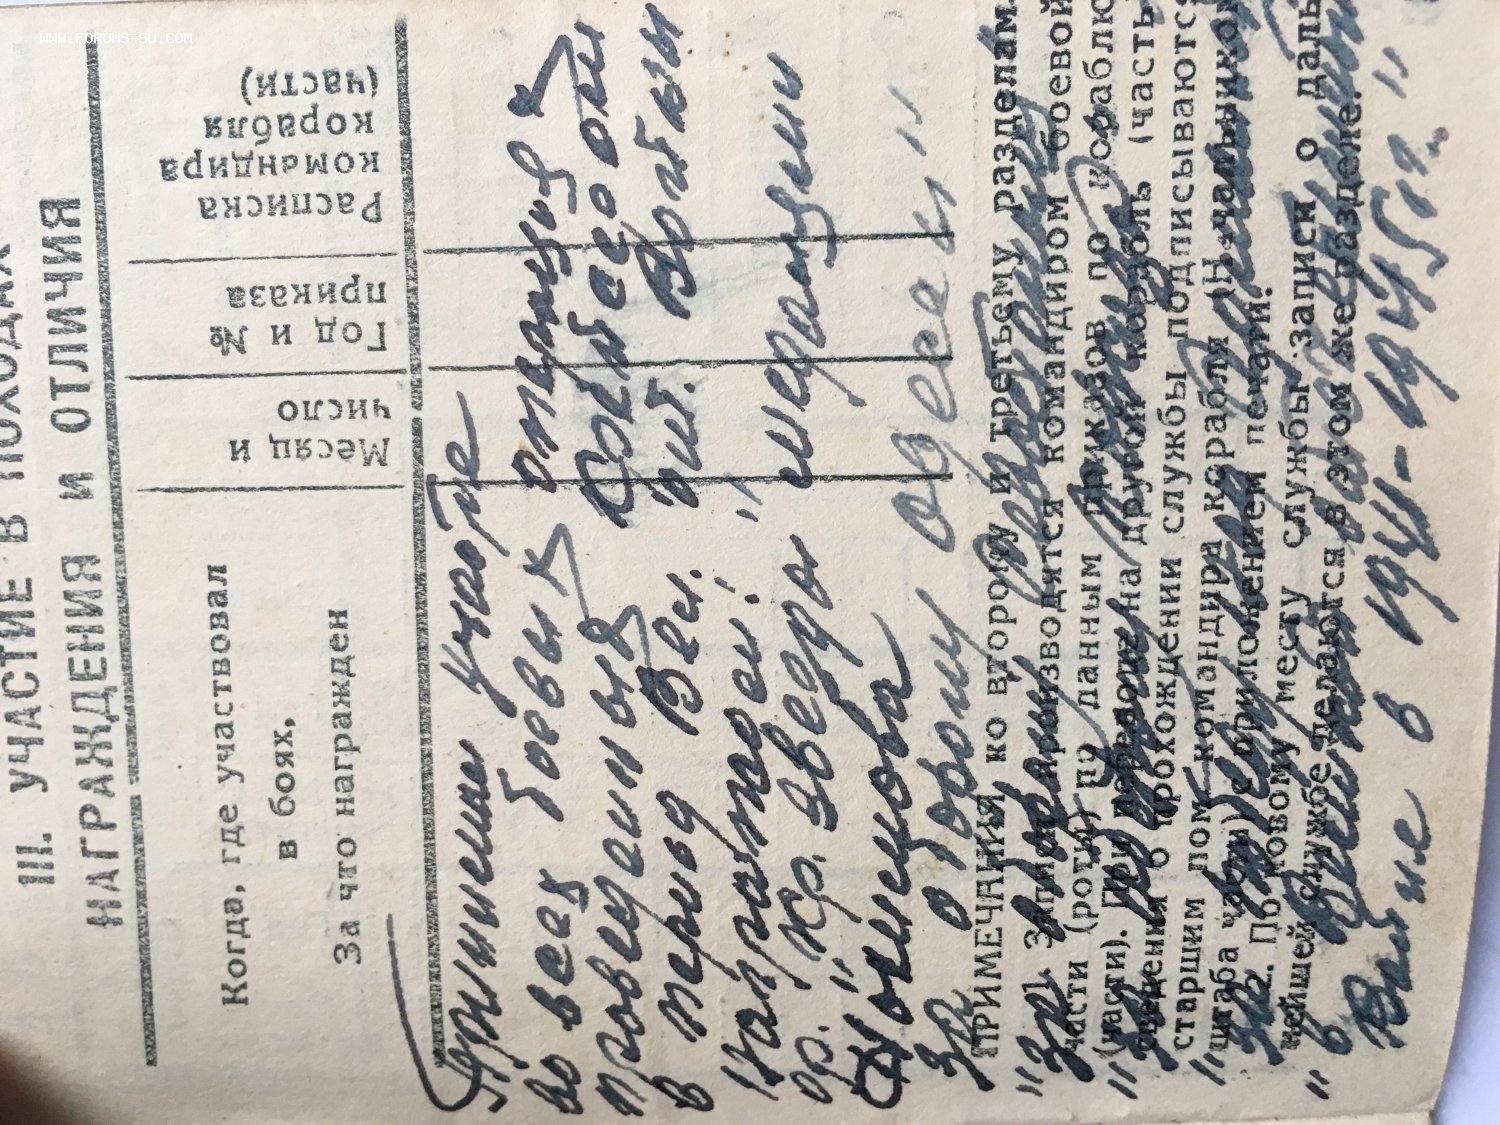 WWW.FORUMS-SU.COM
III. УЧАСТИЕ В ПОХОДАХ
НАГРАЖДЕНИЯ И ОТЛИЧИЯ
Когда, где участвовал
в боях,
За что награжден
Месяц и
число
Год и №
приказа
Расписка
командира
корабля
(части)
Принимал участие
во всех боевых операциях
проведенных Советской
в период Вел. От. Войны
Награжден: "медалями
ор. Кр. Звезды
Ушакова
за оборону Одессы"
ПРИМЕЧАНИЯ ко второму и третьему разделам.
1. Записи производятся командиром боевой
части (роты) по данным приказов по кораблю
(части). При переводе на другой корабль (часть)
сведения о прохождении службы подписываются
старшим пом. командира корабля (начальником
штаба части) с приложением печати.
2. По новому месту службы записи о даль-
нейшей службе делаются в этом же разделе.
"За оборону
"За
"За победу над Германией
в Великой Отечественной
Войне в 1941-1945 г.г."